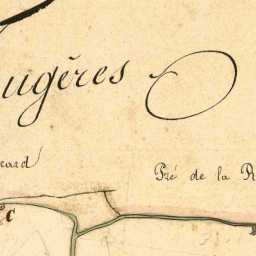 ugères
eard
Pré de la R
C